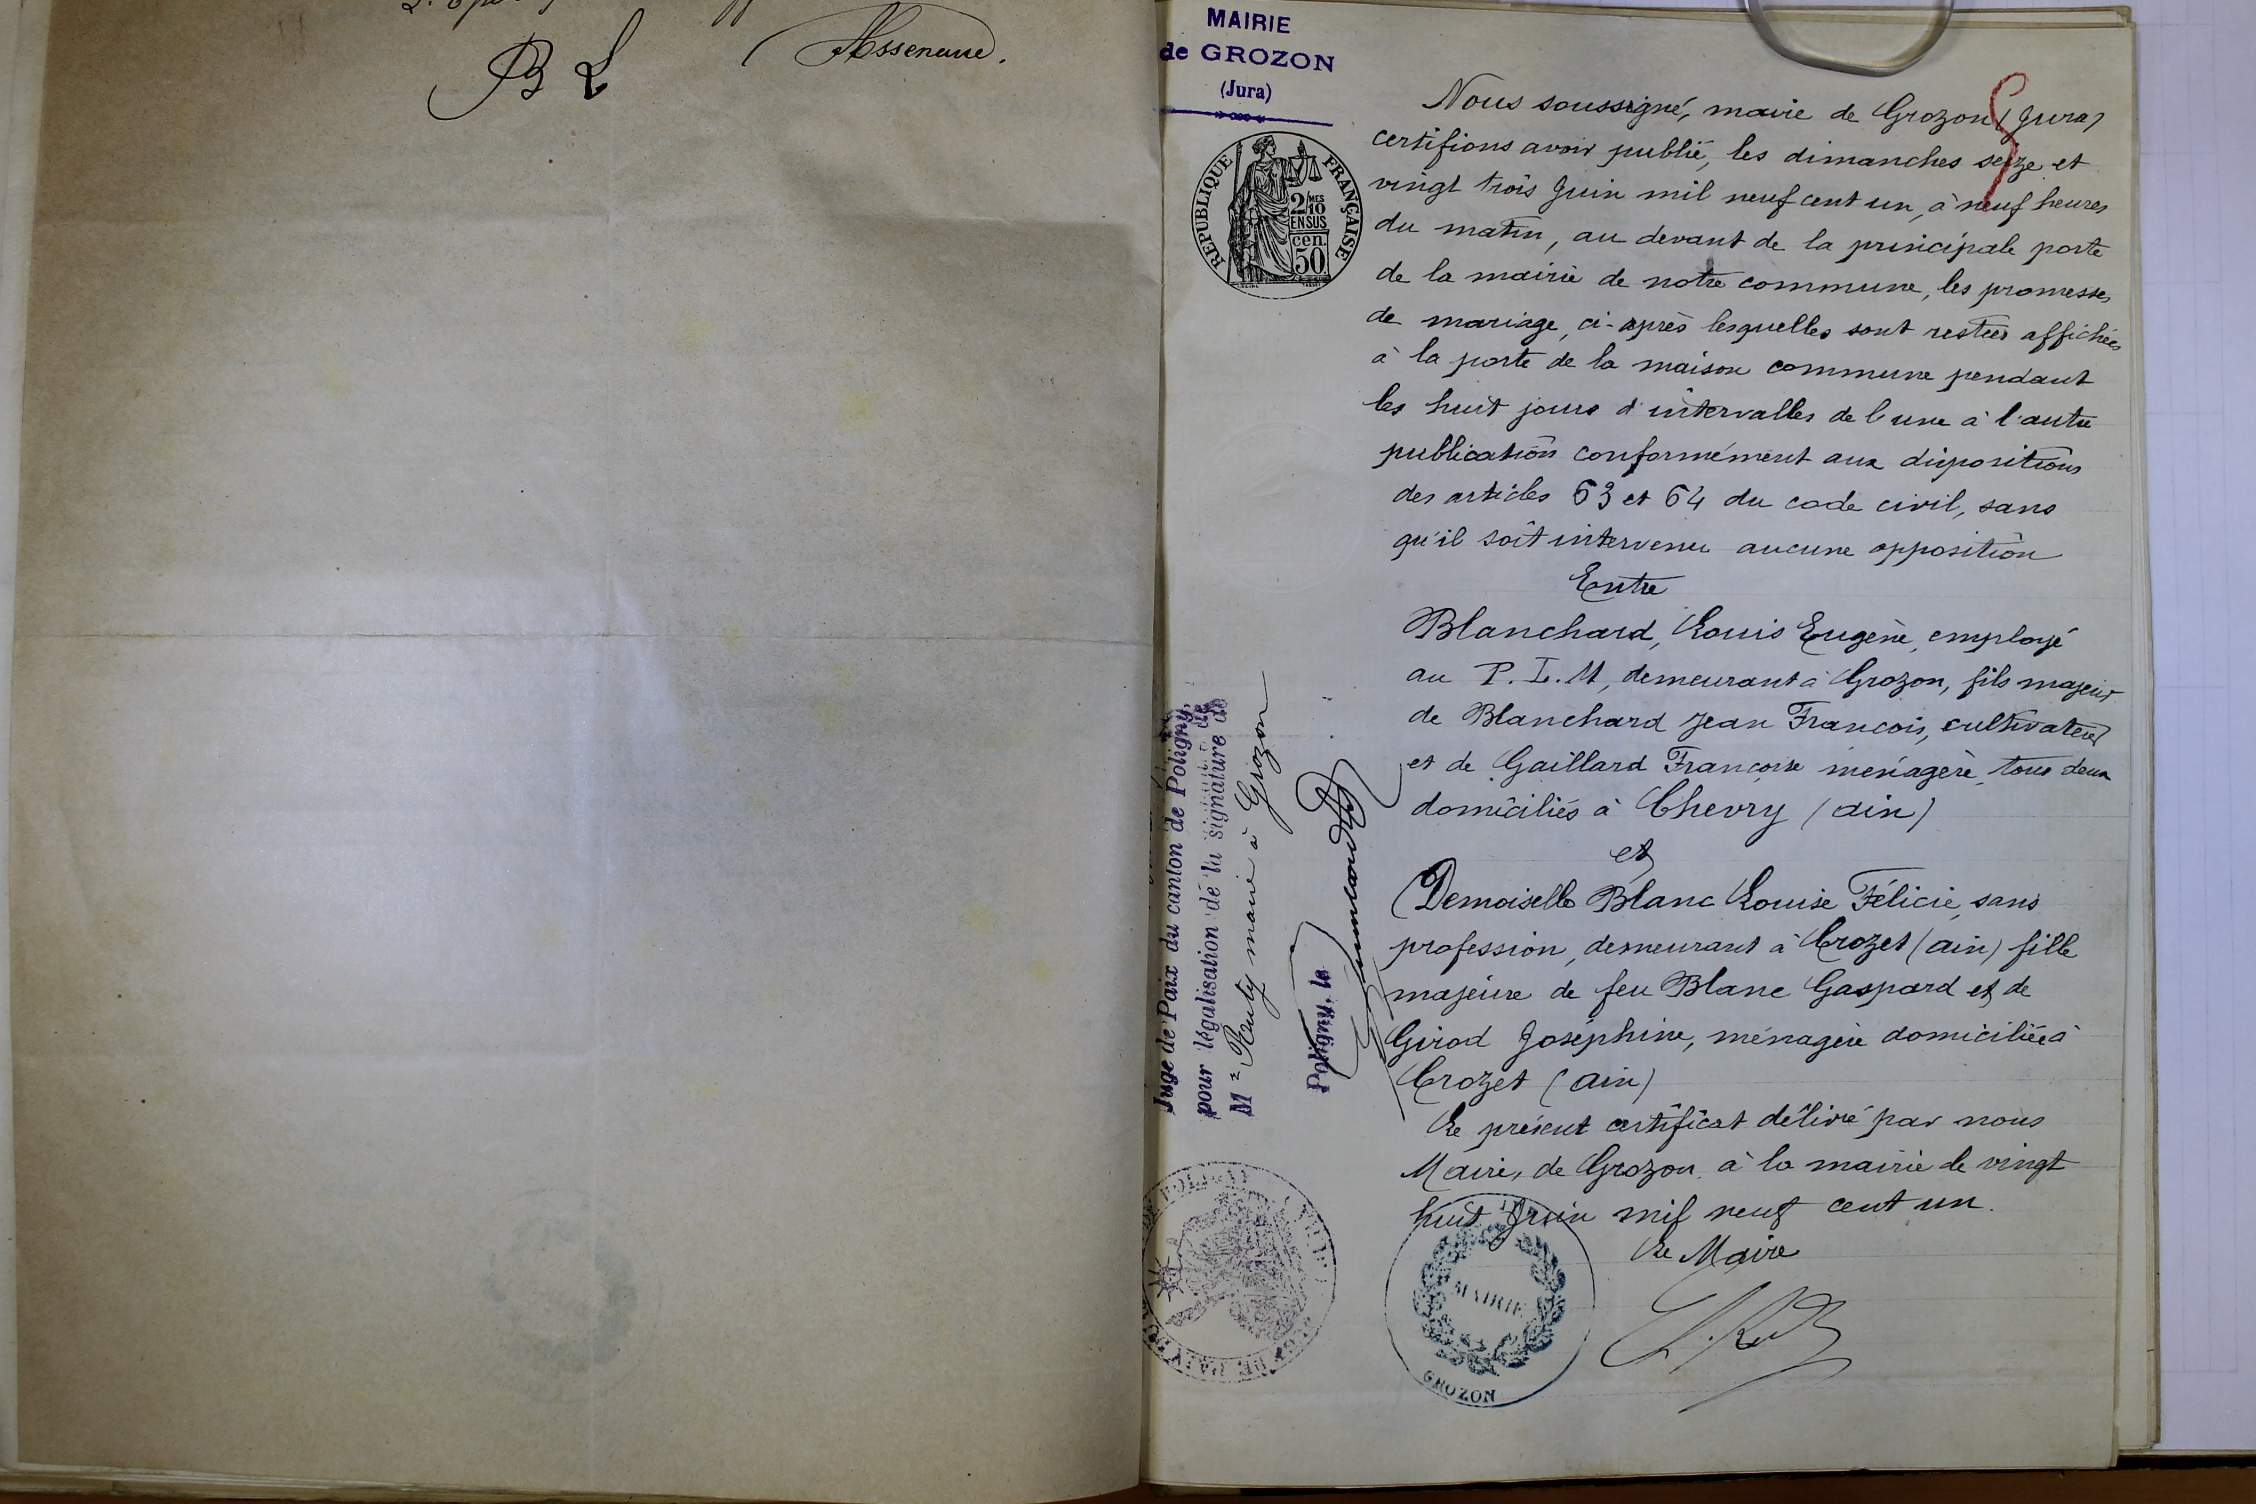 B L
MAIRIE
de GROZON
(Jura)
REPUBLIQUE FRANÇAISE
2/10
MES
EN SUS
cen.
50
Nous soussigné, maire de Grozon (Jura)
certifions avoir publié, les dimanches seize et
vingt trois Juin mil neuf cent un, à neuf heures
du matin, au devant de la principale porte
de la mairie de notre commune, les promesses
de mariage, ci-après lesquelles sont restées affichées
à la porte de la maison commune pendant
les huit jours d'intervalles de l'une à l'autre
publication conformément aux dispositions
des articles 63 et 64 du code civil, sans
qu'il soit intervenu aucune opposition
Entre
Blanchard, Louis Eugène, employé
au P. L. M, demeurant à Grozon, fils majeur
de Blanchard Jean François, cultivateur
et de Gaillard Françoise ménagère, tous deux
domiciliés à Chevry (ain)
et
Demoiselle Blanc Louise Félicie, sans
profession, demeurant à Crozet (ain) fille
majeure de feu Blanc Gaspard et de
Girod Joséphine, ménagère domiciliée à
Crozet (ain)
Le présent certificat délivré par nous
Maire, de Grozon à la mairie le vingt
huit Juin mil neuf cent un.
Le Maire
Juge de Paix du canton de Poligny,
pour légalisation de la signature de
M Ruty maire à Grozon
Poligny, le
MAIRIE
GROZON